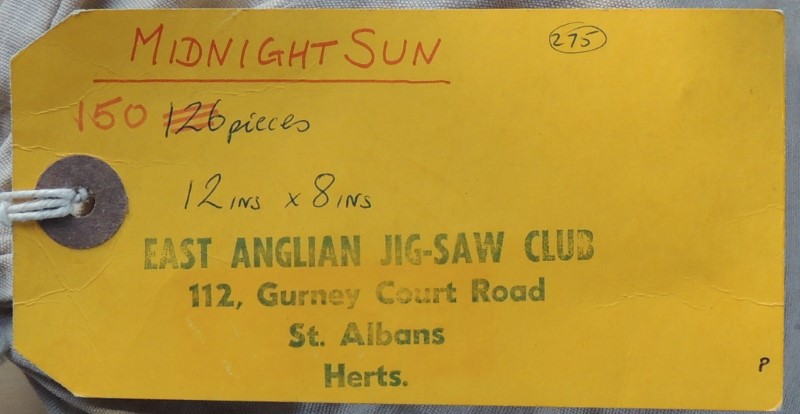 MIDNIGHT SUN
275
150 126 pieces
12 INS x 8 INS
EAST ANGLIAN JIG-SAW CLUB
112, Gurney Court Road
St. Albans
Herts.
P